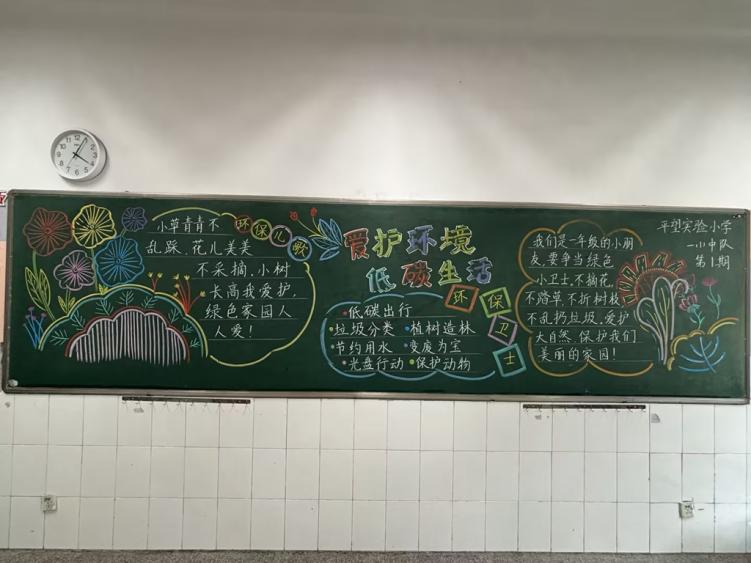 环保儿歌
小草青青不
乱踩,花儿美美
不采摘,小树
长高我爱护,
绿色家园人
人爱!
爱护环境
低碳生活
环保卫士
低碳出行
垃圾分类 植树造林
节约用水 变废为宝
光盘行动 保护动物
我们是一年级的小朋
友,要争当绿色
小卫士,不摘花,
不踏草,不折树枝,
不乱扔垃圾,爱护
大自然,保护我们
美丽的家园!
平望实验小学
一小中队
第1期